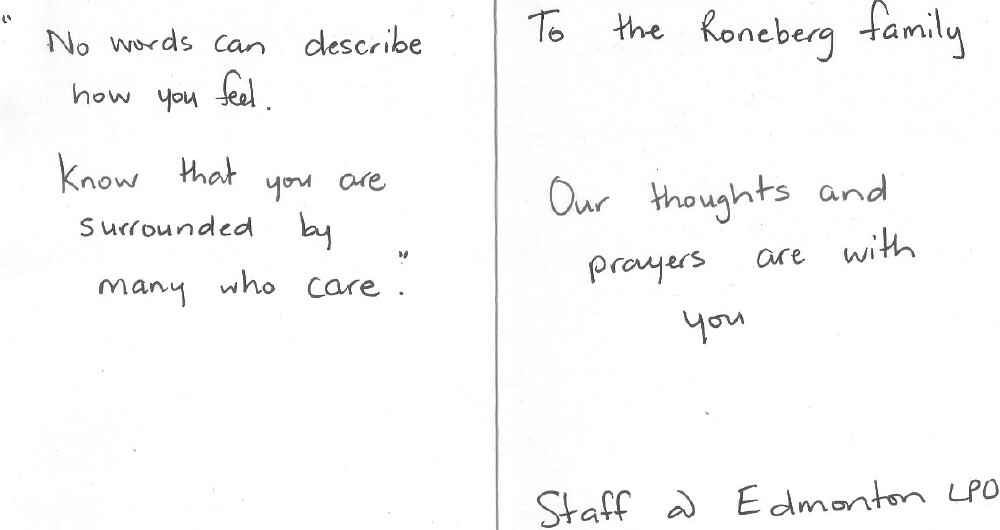 "No words can describe
how you feel.
Know that you are
surrounded by
many who care."
To the Roneberg family
Our thoughts and
prayers are with
you
Staff @ Edmonton LPO